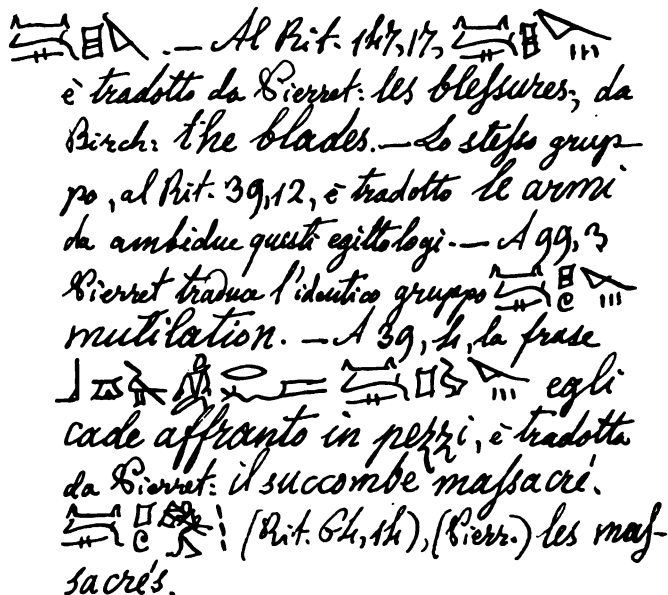 .— Al Rit. 147,17,
è tradotto da Pierret: les blessures; da
Birch: the blades. — Lo stesso grup-
po, al Rit. 39,12, è tradotto le armi
da ambidue questi egittologi. — A 99,3
Pierret traduce l'identico gruppo
mutilation. — A 39,4, la frase
egli
cade affranto in pezzi, è tradotta
da Pierret: il succombe massacré.
(Rit. 64,14), (Pierr.) les mas-
sacrés.